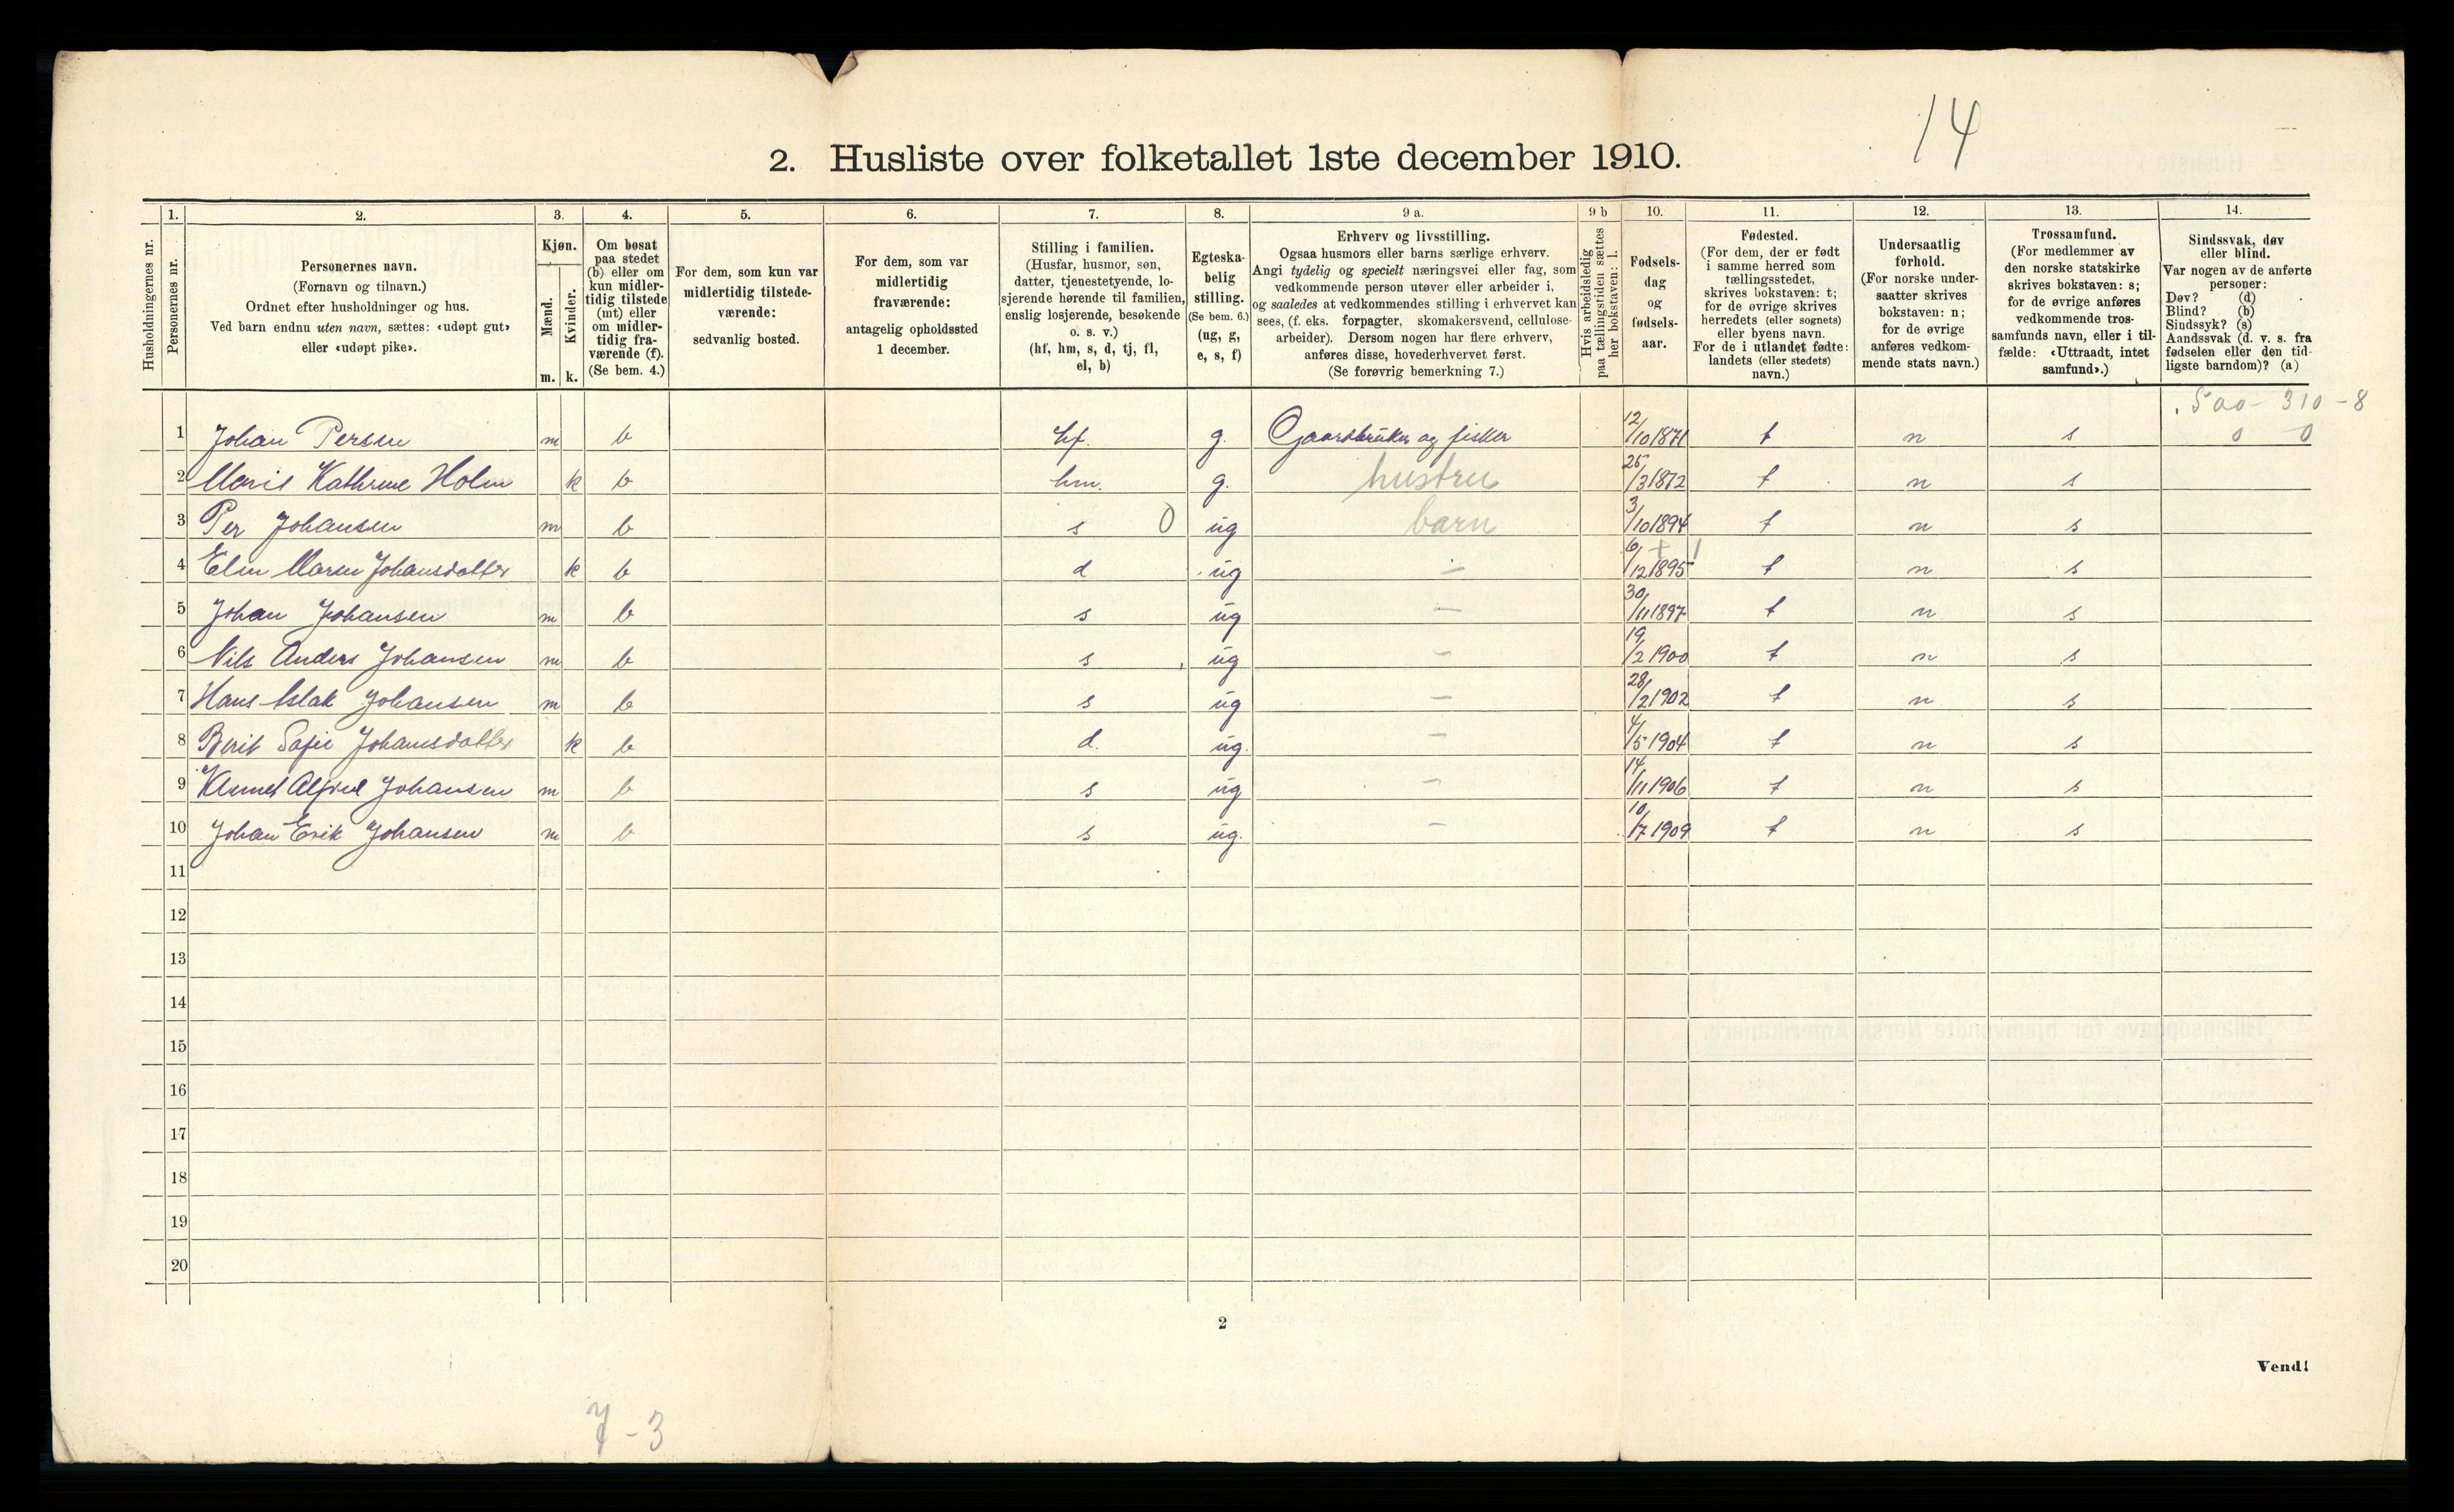 14
2. Husliste over folketallet 1ste december 1910.
Husholdningernes nr.
1.
Personernes nr.
2.
Personernes navn.
(Fornavn og tilnavn.)
Ordnet efter husholdninger og hus.
Ved barn endnu uten navn, sættes: «udøpt gut»
eller «udøpt pike».
3.
Kjøn.
Mænd.
Kvinder.
m. k.
4.
Om bosat
paa stedet
(b) eller om
kun midler-
tidig tilstede
(mt) eller
om midler-
tidig fra-
værende (f).
(Se bem. 4.)
5.
For dem, som kun var
midlertidig tilstede-
værende:
sedvanlig bosted.
6.
For dem, som var
midlertidig
fraværende:
antagelig opholdssted
1 december.
7.
Stilling i familien.
(Husfar, husmor, søn,
datter, tjenestetyende, lo-
sjerende hørende til familien,
enslig losjerende, besøkende
o. s. v.)
(hf, hm, s, d, tj, fl,
el, b)
8.
Egteska-
belig
stilling.
(Se bem. 6.)
(ug, g,
e, s, f)
9 a.
Erhverv og livsstilling.
Ogsaa husmors eller barns særlige erhverv.
Angi tydelig og specielt næringsvei eller fag, som
vedkommende person utøver eller arbeider i,
og saaledes at vedkommendes stilling i erhvervet kan
sees, (f. eks. forpagter, skomakersvend, cellulose-
arbeider). Dersom nogen har flere erhverv,
anføres disse, hovederhvervet først.
(Se forøvrig bemerkning 7.)
9 b
Hvis arbeidsledig
paa tællingstiden sættes
her bokstaven: l.
10.
Fødsels-
dag
og
fødsels-
aar.
11.
Fødested.
(For dem, der er født
i samme herred som
tællingsstedet,
skrives bokstaven: t;
for de øvrige skrives
herredets (eller sognets)
eller byens navn.
For de i utlandet fødte:
landets (eller stedets)
navn.)
12.
Undersaatlig
forhold.
(For norske under-
saatter skrives
bokstaven: n;
for de øvrige
anføres vedkom-
mende stats navn.)
13.
Trossamfund.
(For medlemmer av
den norske statskirke
skrives bokstaven: s;
for de øvrige anføres
vedkommende tros-
samfunds navn, eller i til-
fælde: «Uttraadt, intet
samfund».)
14.
Sindssvak, døv
eller blind.
Var nogen av de anførte
personer:
Døv? (d)
Blind? (b)
Sindssyk? (s)
Aandssvak (d. v. s. fra
fødselen eller den tid-
ligste barndom)? (a)
500 - 310 - 8
1 Johan Persen m b hf. g. Gaardbruker og fisker 12/10 1871 t n s 0 0
2 Marit Kathrine Holm k b hm. g. hustru 25/3 1872 t n s
3 Per Johansen m b s 0 ug barn 3/10 1894 t n s
4 Elen Maren Johansdatter k b d ug — 6/12 1895 t n s
5 Johan Johansen m b s ug — 30/11 1897 t n s
6 Nils Anders Johansen m b s ug — 19/2 1900 t n s
7 Hans Aslak Johansen m b s ug — 28/2 1902 t n s
8 Berit Sofie Johansdatter k b d. ug. — 4/5 1904 t n s
9 Klemet Alfred Johansen m b s ug — 14/11 1906 t n s
10 Johan Erik Johansen m b s ug. — 10/7 1909 t n s
11
12
13
14
15
16
17
18
19
20
2
Vend!
7 - 3